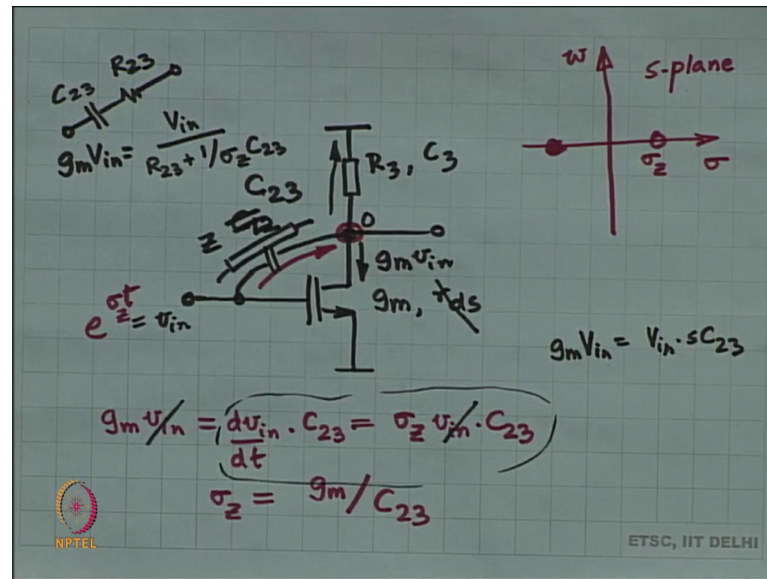 C23 R23
gmVin = Vin / R23 + 1/σz C23
C23
Z
R3, C3
0
gm vin
gm, rds
e^σz t = vin
ω
s-plane
σz σ
gmVin = Vin · sC23
gm vin = dvin/dt · C23 = σz vin · C23
σz = gm / C23
NPTEL
ETSC, IIT DELHI